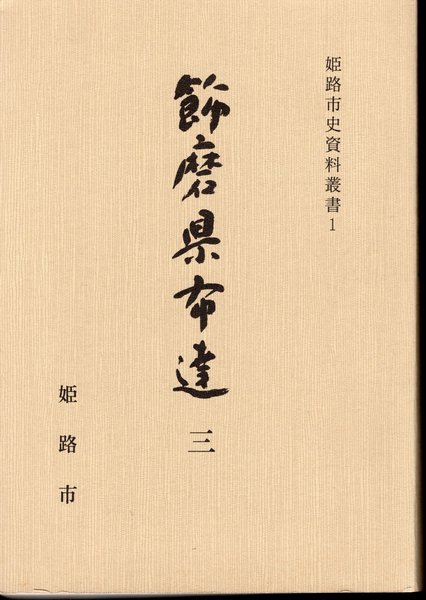 姫路市史資料叢書1
飾磨県布達 三
姫路市